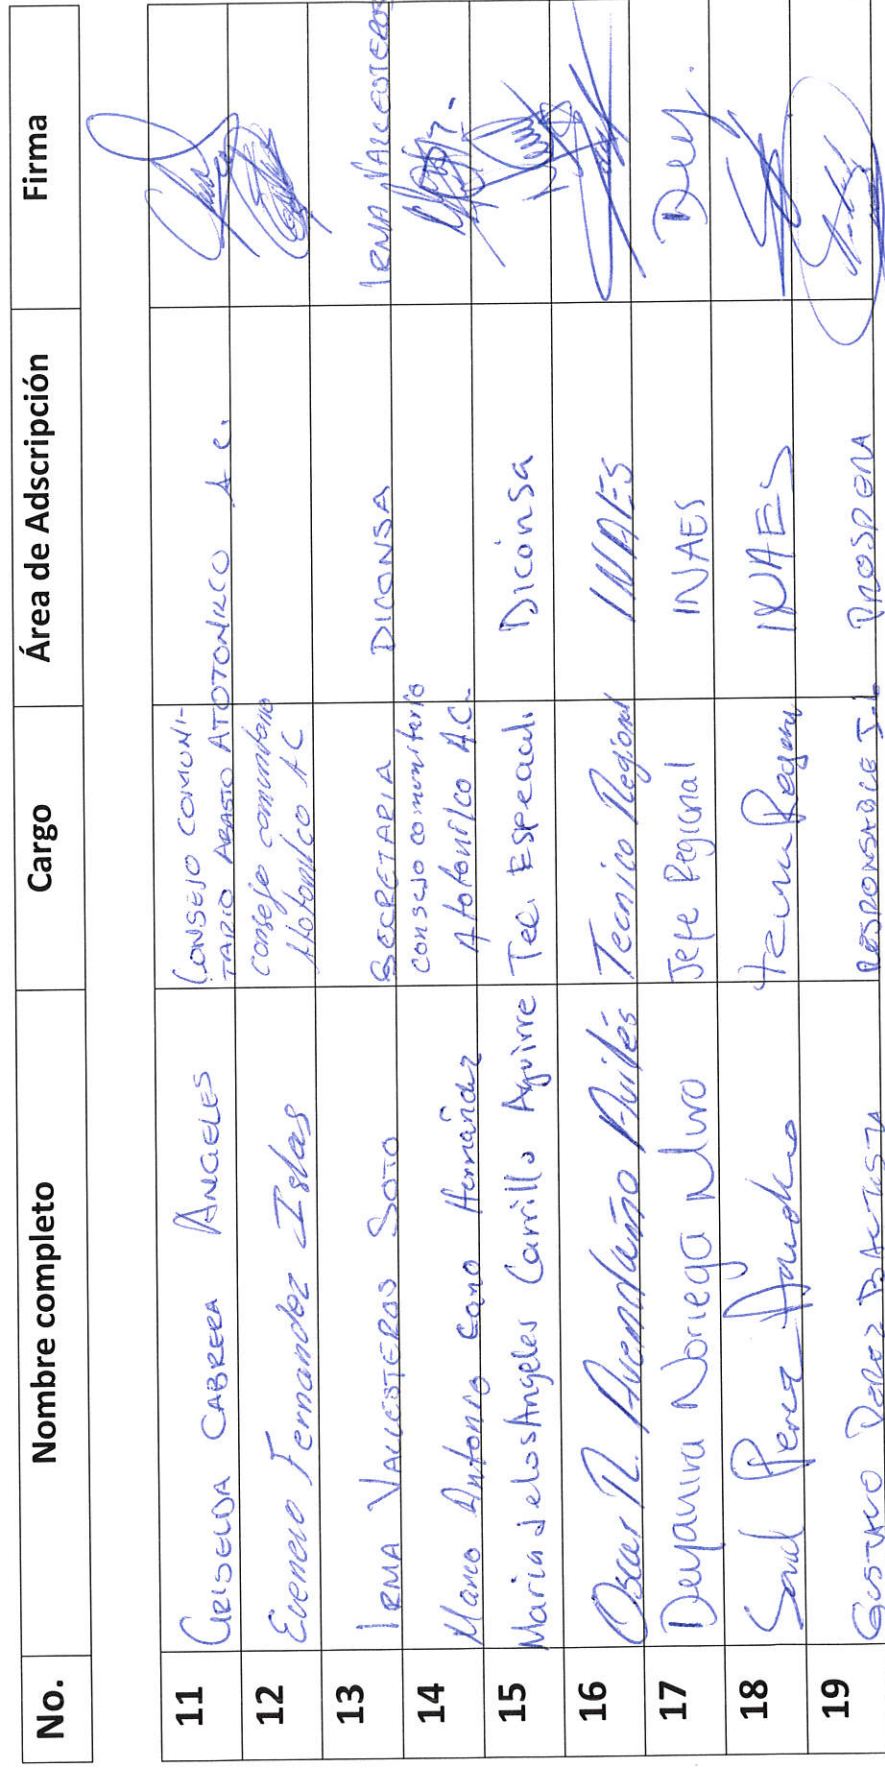 No. Nombre completo Cargo Área de Adscripción Firma
11 GRISELDA CABRERA ANGELES CONSEJO COMUNI-
TARIO ABASTO ATOTONILCO A.C.
12 Fernandez Islas consejo comunitario
Atotonilco AC
13 IRMA VALLESTEROS SOTO SECRETARIA DICONSA IRMA VALLESTEROS
14 Marco Antonio Cano Hernández consejo comunitario
Atotonilco A.C.
15 Maria de los Angeles Carrillo Aguirre Tec. Especial. Diconsa
16 Oscar R. Avendaño Avilés Tecnico Regional INAES
17 Deyanira Noriega Muro Jefe Regional INAES Dey.
18 Saul Perez INAES
19 GUSTAVO PEREZ BAUTISTA RESPONSABLE PROSPERA